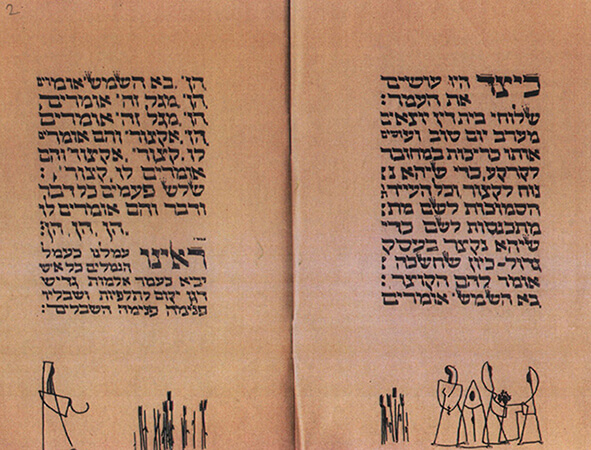 2
כיצד היו עושים
את העמר:
שלוחי בית דין יוצאים
מערב יום טוב ועושים
אותו כריכות במחובר
לקרקע, כדי שיהא נ:
נוח לקצור וכל
הסמוכות לשם מת:
מתכנסות לשם כדי
שיהא נקצר בעסק
גדול-כיון שחשכה :
אומר להם הקוצר:
בא השמש' אומרים
הן', בא השמש' אומרים
הן', מגל זה' אומרים,
הן', מגל זה' אומרים
הן', אקצור' והם אומרים
לו, קצור', אקצור' והם
אומרים לו, קצור', :
שלש פעמים כל דבר
ודבר והם אומרים לו
הן, הן, הן:
ראינו עמלנו כעמל
הנמלים כל אש
יביא בעמר אלמות גדיש
דגן יקום לתלפיות
פנימה פנימה השבלים: